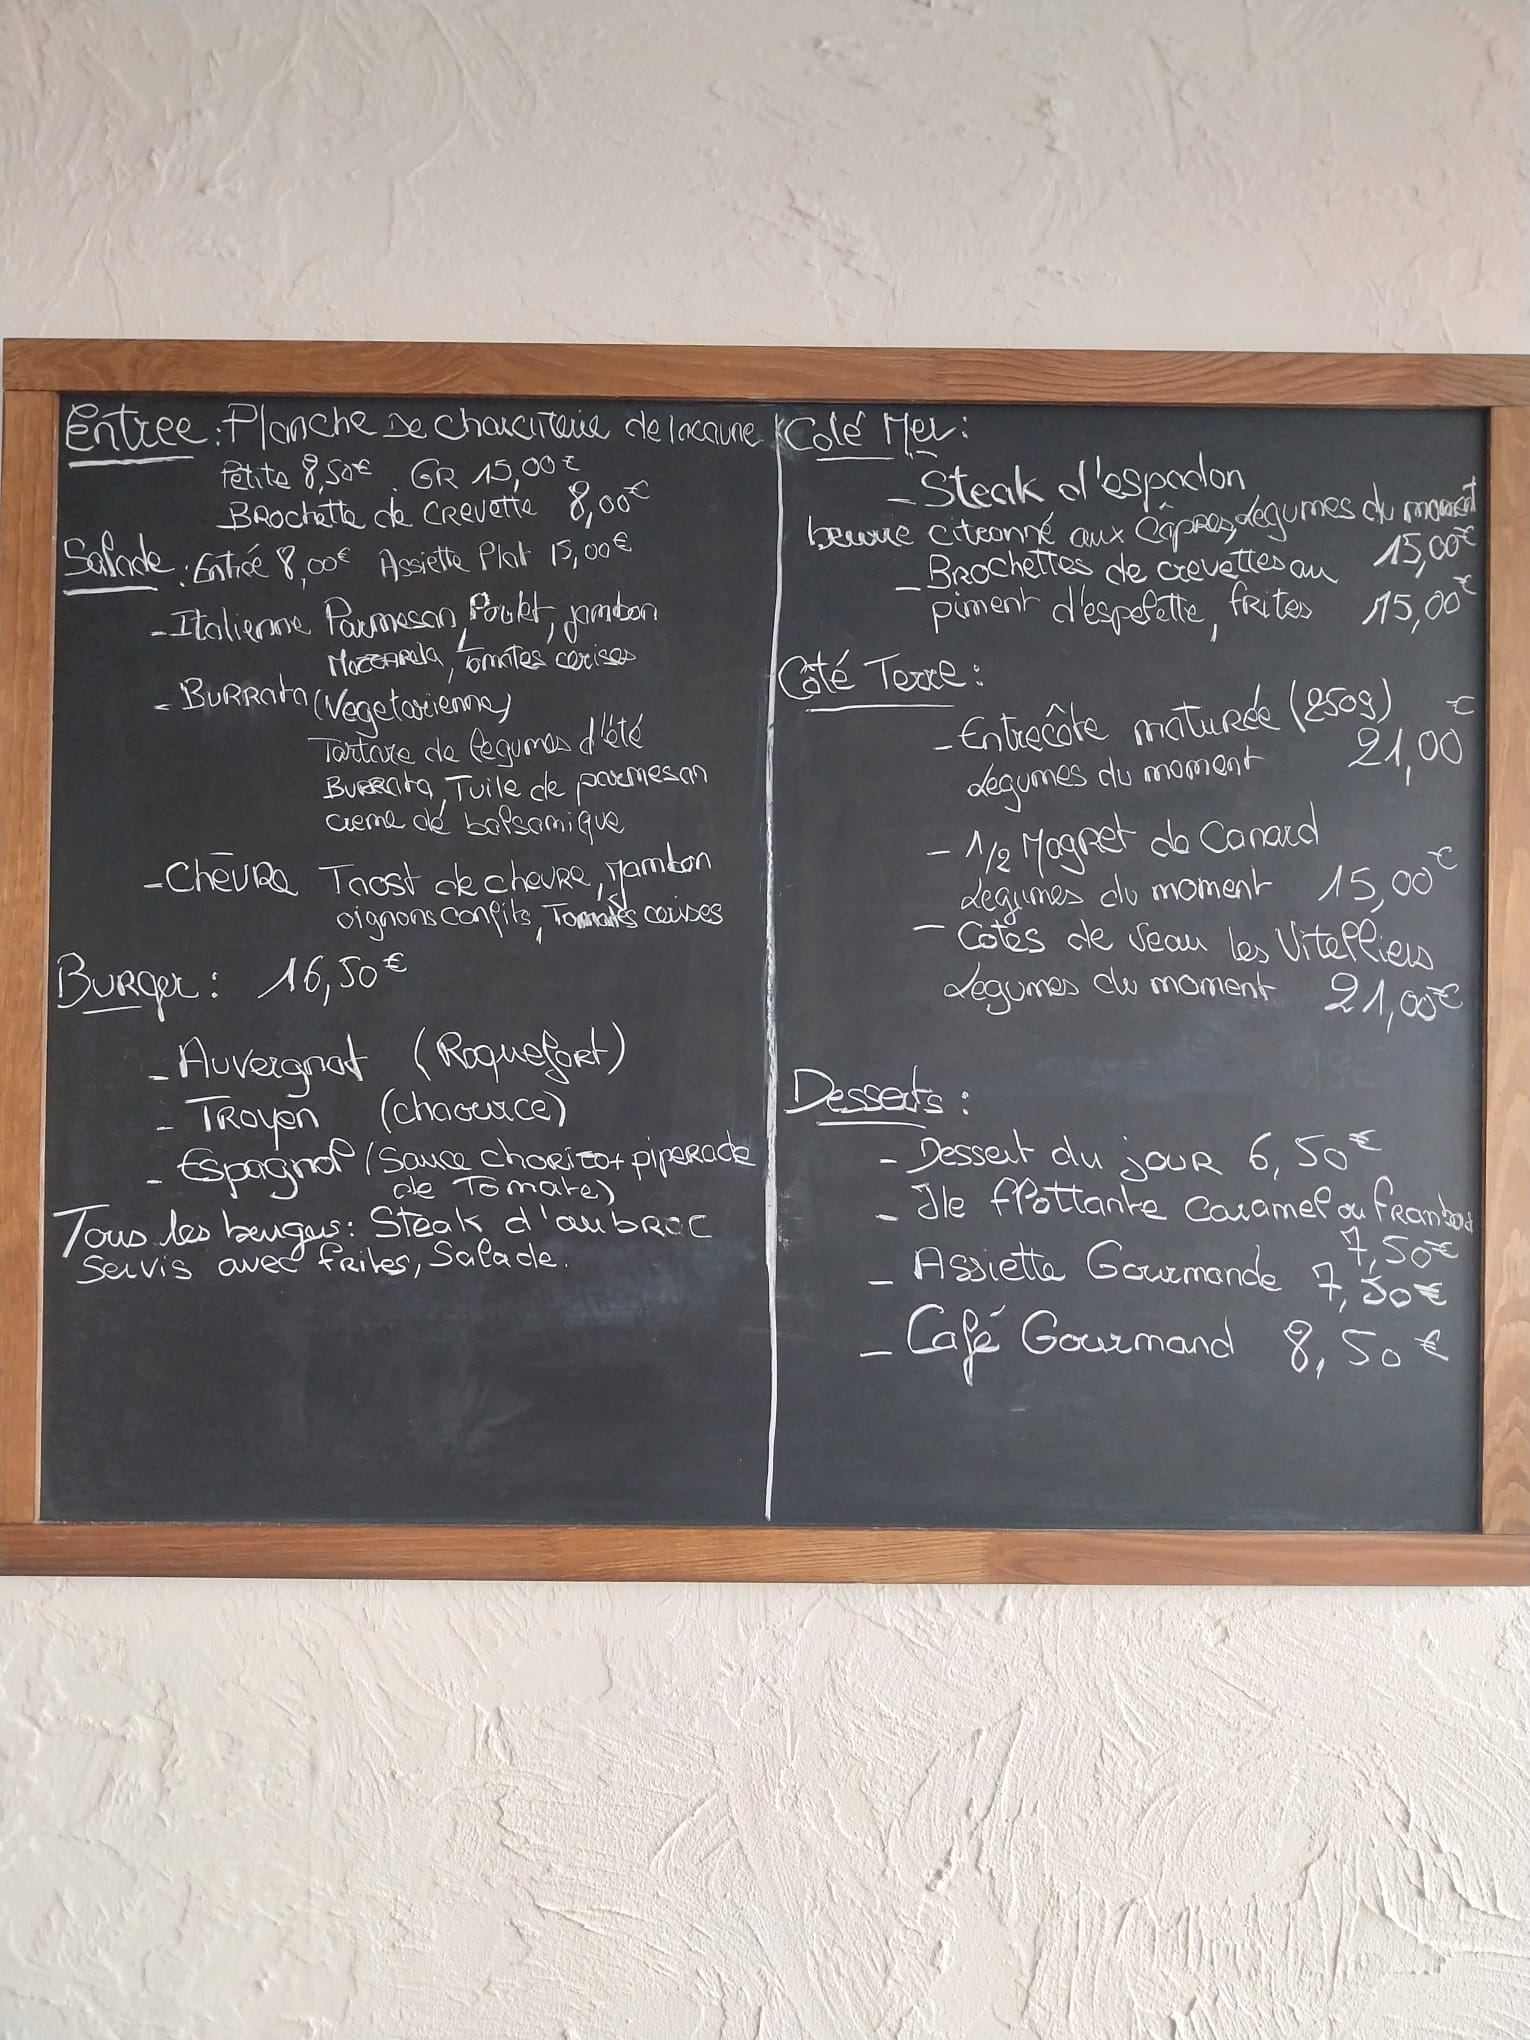 Entree : Planche De charcuterie de lacaune
Petite 8,50€ . GR 15,00€
Brochette de Crevette 8,00€
Salade : Entrée 8,00€ Assiette Plat 15,00€
- Italienne Parmesan, Poulet, jambon
Mozzarela, Tomates cerises
- Burrata (Vegetarienne)
Tartare de legumes d'été
Burrata, Tuile de parmesan
creme de balsamique
- Chèvre Taost de chevre, jambon
oignons confits, Tomates cerises
Burger : 16,50€
- Auvergnat (Roquefort)
- Troyen (chaource)
- Espagnol (Sauce chorizo + piperade
de Tomate)
Tous les burgers : Steak d'aubrac
Servis avec frites, Salade.
Coté Mer :
- Steak d'espadon
beurre citronné aux Câpres, légumes du moment
15,00€
- Brochettes de crevettes au
piment d'espelette, frites 15,00€
Côté Terre :
- Entrecôte maturée (250g)
Legumes du moment 21,00€
- 1/2 Magret de Canard
Legumes du moment 15,00€
- Cotes de Veau les Vitelliers
Legumes du moment 21,00€
Desserts :
- Dessert du jour 6,50€
- Ile flottante Caramel ou
7,50€
- Assiette Gourmande 7,50€
- Café Gourmand 8,50€